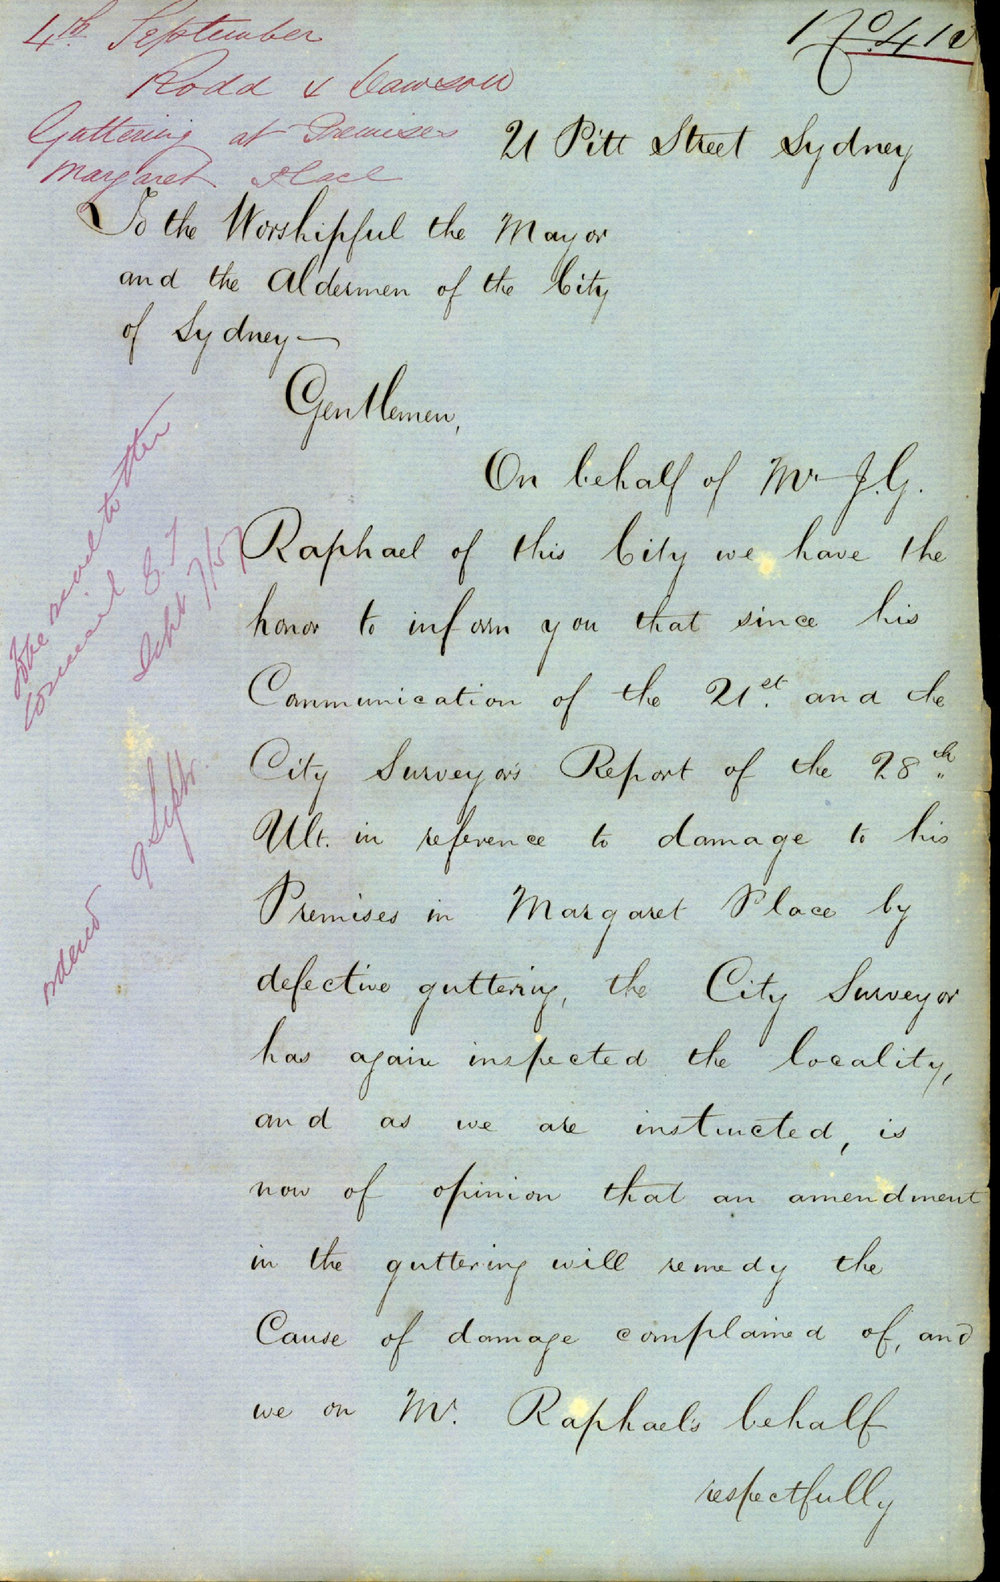 4th September
Rodd & Dawson
Guttering at Premises
Margaret Place
No. 410
21 Pitt Street Sydney
To the Worshipful the Mayor
and the Aldermen of the City
of Sydney—
Gentlemen,
On behalf of Mr J.G.
Raphael of this City we have the
honor to inform you that since his
Communication of the 21st. and the
City Surveyor's Report of the 28th
Ult. in reference to damage to his
Premises in Margaret Place by
defective guttering, the City Surveyor
has again inspected the locality,
and as we are instructed, is
now of opinion that an amendment
in the guttering will remedy the
Cause of damage complained of, and
we on Mr. Raphael's behalf
respectfully
To be read to the
Council
Sept 7/57
ordered 9 Septr.